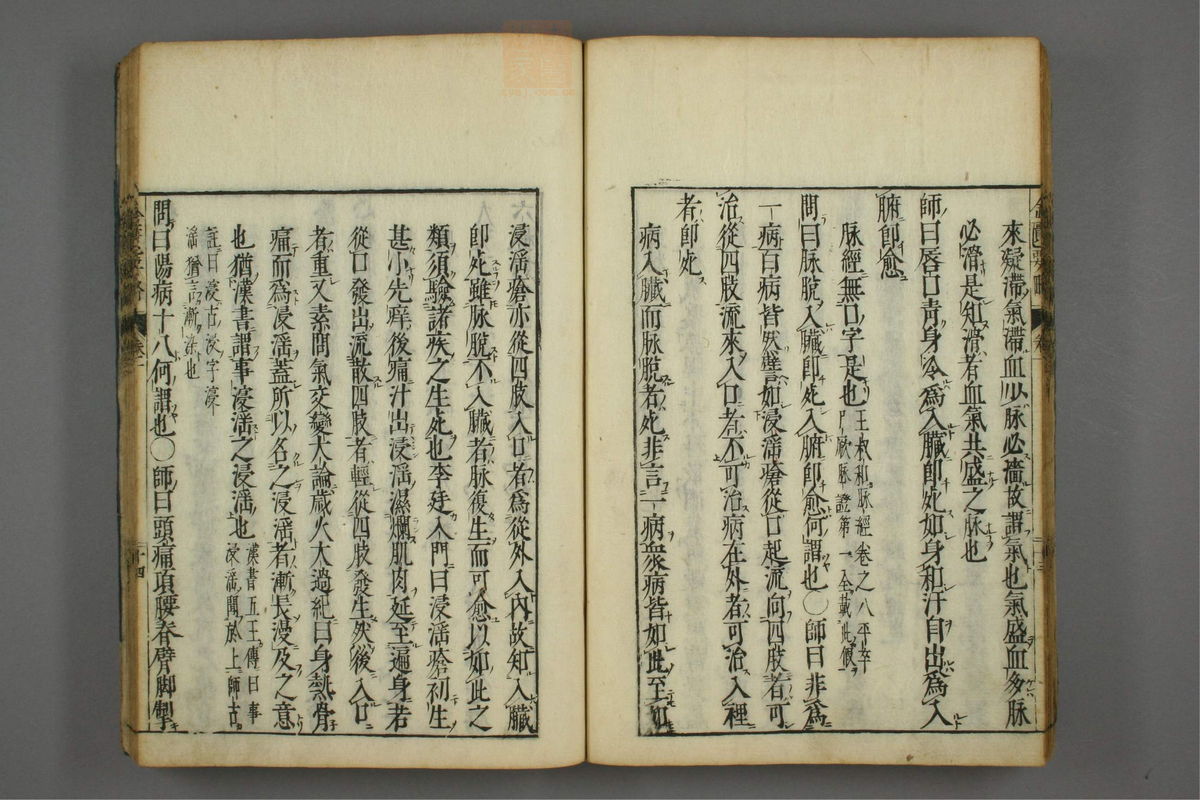 來疑滯氣滯血少脉必濇故謂氣也氣盛血多脉
必滑是知滑者血氣共盛之脉也
師曰唇口青身冷爲入臟即死如身和汗自出爲入
腑即愈
脉經無口字是也王叔和脉經卷之八平卒
尸厥脉證第一全載此候
問曰脉脫入臟即死入腑即愈何謂也〇師曰非爲
一病百病皆然譬如浸淫瘡從口起流向四肢者可
治從四肢流來入口者不可治病在外者可治入裡
者即死
病入臟而脉脫者死非言一病衆病皆如此至如
浸淫瘡亦從四肢入口者爲從外入內故知入臟
即死雖脉脫不入臟者脉復生而可愈以如此之
類須驗諸疾之生死也李廷入門曰浸淫瘡初生
甚小先痒後痛汁出浸淫濕爛肌肉延至遍身若
從口發出流散四肢者輕從四肢發生然後入口
者重又素問氣交變大論歲火太過紀曰身熱骨
痛而爲浸淫蓋所以名之浸淫者漸長漫及之意
也猶漢書謂事寖淫之浸淫也漢書五王傳曰事
寖淫聞於上師古
註曰寖古浸字寖
淫猶言漸染也
問曰陽病十八何謂也〇師曰頭痛項腰脊臂脚掣